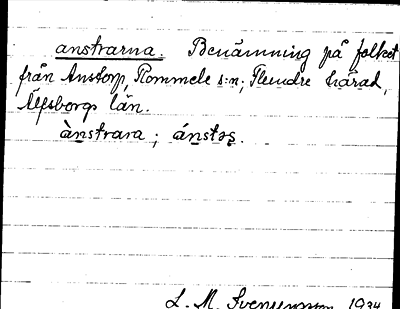 anstrarna. Benämning på folket
från Anstorp, Rommele s:n, Flundre härad,
Älfsborgs län.
ànstrara ; ánstəş.
L. M. Svensson 1934